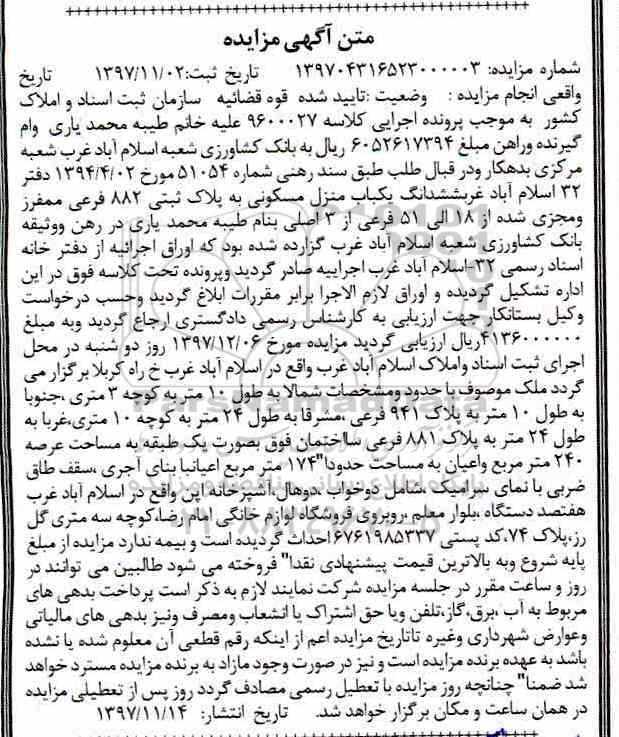 متن آگهی مزایده
شماره مزایده: ۱۳۹۷۰۴۳۱۶۵۲۳۰۰۰۰۰۳ تاریخ ثبت:۱۳۹۷/۱۱/۰۲ تاریخ
واقعی انجام مزایده : وضعیت :تایید شده قوه قضائیه سازمان ثبت اسناد و املاک
کشور به موجب پرونده اجرایی کلاسه ۹۶۰۰۰۲۷ علیه خانم طیبه محمد یاری وام
گیرنده وراهن مبلغ ۶۰۵۲۶۱۷۳۹۴ ریال به بانک کشاورزی شعبه اسلام آباد غرب شعبه
مرکزی بدهکار ودر قبال طلب طبق سند رهنی شماره ۵۱۰۵۴ مورخ ۱۳۹۴/۴/۰۲ دفتر
۳۲ اسلام آباد غربششدانگ یکباب منزل مسکونی به پلاک ثبتی ۸۸۲ فرعی ممفرز
ومجزی شده از ۱۸ الی ۵۱ فرعی از ۳ اصلی بنام طیبه محمد یاری در رهن ووثیقه
بانک کشاورزی شعبه اسلام آباد غرب گزارده شده بود که اوراق اجرائیه از دفتر خانه
اسناد رسمی ۳۲ اسلام آباد غرب اجراییه صادر گردید وپرونده تحت کلاسه فوق در این
اداره تشکیل گردیده و اوراق لازم الاجرا برابر مقررات ابلاغ گردید وحسب درخواست
وکیل بستانکار جهت ارزیابی به کارشناس رسمی دادگستری ارجاع گردید وبه مبلغ
۴۱۳۶۰۰۰۰۰۰ریال ارزیابی گردید مزایده مورخ ۱۳۹۷/۱۲/۰۶ روز دو شنبه در محل
اجرای ثبت اسناد واملاک اسلام آباد غرب واقع در اسلام آباد غرب خ راه کربلا برگزار می
گردد ملک موصوف با حدود ومشخصات شمالا به طول ۱۰ متر به کوچه ۳ متری ،جنوبا
به طول ۱۰ متر به پلاک ۹۴۱ فرعی ،مشرقا به طول ۲۴ متر به کوچه ۱۰ متری،غربا به
طول ۲۴ متر به پلاک ۸۸۱ فرعی ساختمان فوق بصورت یک طبقه به مساحت عرصه
۲۴۰ متر مربع واعیان به مساحت حدودا"۱۷۴ متر مربع اعیانبا بنای آجری ،سقف طاق
ضربی با نمای سرامیک ،شامل دوخواب ،دوهال،آشپزخانه اپن واقع در اسلام آباد غرب
هفتصد دستگاه ،بلوار معلم ،روبروی فروشگاه لوازم خانگی امام رضا،کوچه سه متری گل
رز،پلاک ۷۴،کد پستی ۶۷۶۱۹۸۵۳۳۷احداث گردیده است و بیمه ندارد مزایده از مبلغ
پایه شروع وبه بالاترین قیمت پیشنهادی نقدا" فروخته می شود طالبین می توانند در
روز و ساعت مقرر در جلسه مزایده شرکت نمایند لازم به ذکر است پرداخت بدهی های
مربوط به آب ،برق،گاز،تلفن ویا حق اشتراک یا انشعاب ومصرف ونیز بدهی های مالیاتی
وعوارض شهرداری وغیره تاتاریخ مزایده اعم از اینکه رقم قطعی آن معلوم شده یا نشده
باشد به عهده برنده مزایده است و نیز در صورت وجود مازاد به برنده مزایده مسترد خواهد
شد ضمنا" چنانچه روز مزایده با تعطیل رسمی مصادف گردد روز پس از تعطیلی مزایده
در همان ساعت و مکان برگزار خواهد شد. تاریخ انتشار: ۱۳۹۷/۱۱/۱۴